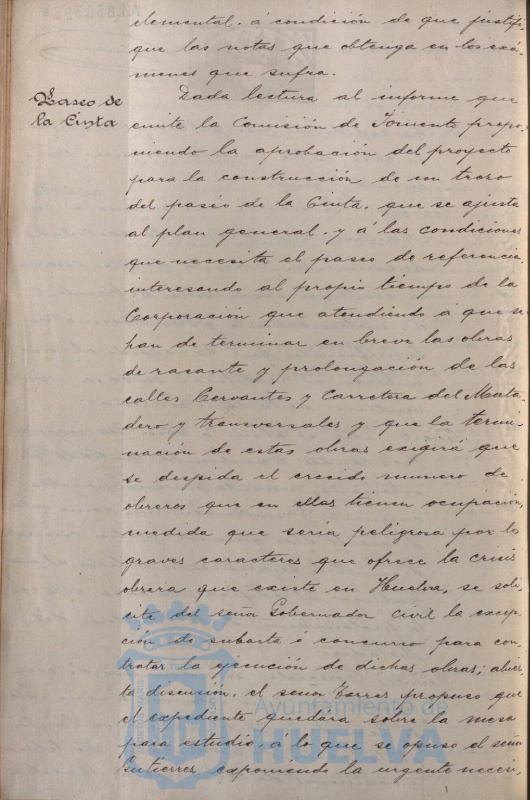 elemental, á condición de que justifi-
que las notas que obtenga en los exá-
menes que sufra.
Paseo de
la Cinta
Dada lectura al informe que
emite la Comisión de Fomento propo-
niendo la aprobación del proyecto
para la construcción de un trozo
del paseo de la Cinta, que se ajusta
al plan general, y á las condiciones
que necesita el paseo de referencia,
interesando al propio tiempo de la
Corporación que atendiendo á que se
han de terminar en breve las obras
de rasante y prolongación de las
calles Cervantes y Carretera del Mata-
dero y transversales y que la termi-
nación de estas obras exigirá que
se despida el crecido numero de
obreros que en ellas tienen ocupación,
medida que sería peligrosa por los
graves caracteres que ofrece la crisis
obrera que existe en Huelva, se soli-
cite del señor Gobernador Civil la excep-
ción de subasta ó concurso para con-
tratar la ejecución de dichas obras; abier-
ta discusión, el señor Terres propuso que
el expediente quedara sobre la mesa
para estudio, á lo que se opuso el señor
Gutierrez exponiendo la urgente necesi-
Ayuntamiento de
HUELVA